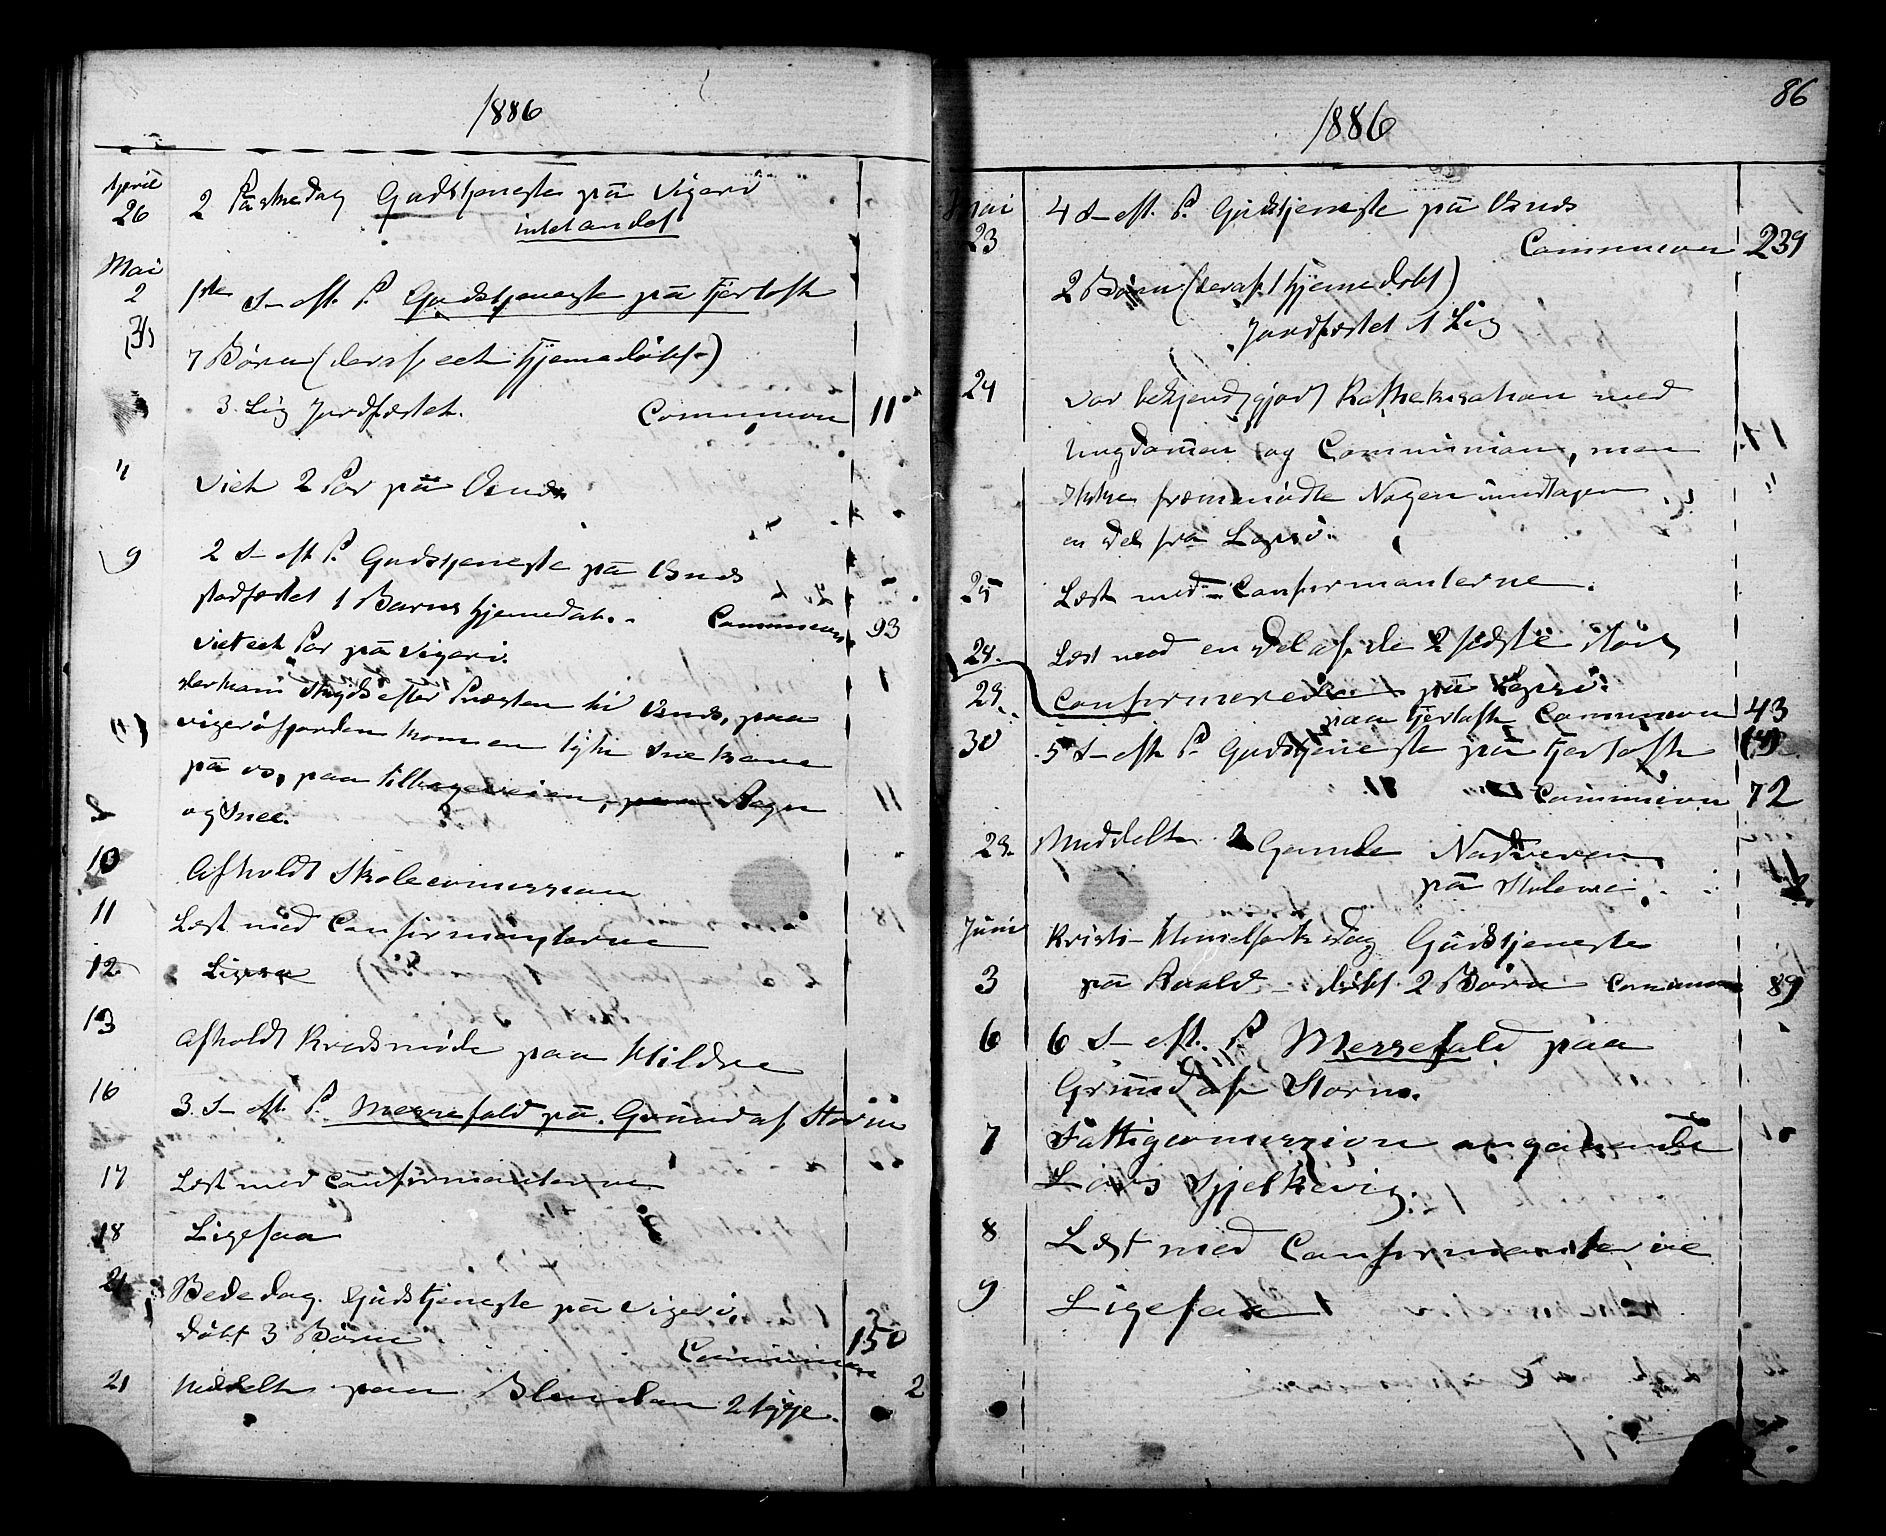 1886
April
26 2 Påskedag Gudstjeneste på Vigerö
intet andet
Mai
2 1ste S. eft. P. Gudstjeneste på Fjørtoft
7 Börn (deraf eet hjemedöbt)
3 Lig Jordfæstet. Communion 11
" Viet 2 Par på
9 2 S. eft. P. Gudstjeneste på
stadfæstet 1 Barns hjemedåb. Communion 93
Viet eet Par på Vigerö.
Præsten til paa
Vigeröfjorden kom en
på os, paa tilbageveien, paa Regn
og Snee.
10 Afholdt Skolecommission
11 Læst med Confirmanterne
12 Ligesaa
13 Afholdt Kredsmöde paa Hildre
16 3. S. eft. P. Messefald på Grund af Storm
17 Læst med Confirmanterne
18 Ligesaa
21 Bededag. Gudstjeneste på Vigerö.
döbt 3 Börn. Communion 150
21 Meddelt paa 2 syge. 2
86
1886
Mai
23 4 S. eft. P. Gudstjeneste på
Communion 239
2 Börn (deraf 1 hjemedöbt)
Jordfæstet 1 Lig
24 Var bekjendtgjort Kathekisation med
Ungdommen og Communion, men
Ikke fremmödte Nogen undtagen
en del fra Lepsö.
25 Læst med Confirmanterne.
28. Læst med en Del af de 2 sidste
29. Confirmerede på Lepsö.
paa Fjørtoft Communion 43
30 5 S. eft. P. Gudstjeneste på Fjørtoft
Communion 72
29. Meddelt 2 Gamle Nadveren
på
Juni Kristi Himelfarts Dag Gudstjeneste
3 på döbt 2 Börn Communion 89
6 6 S. eft. P. Messefald paa
Grund af Storm.
7 Fattigcommission angaaende
Lars
8 Læst med Confirmanterne
9 Ligesaa